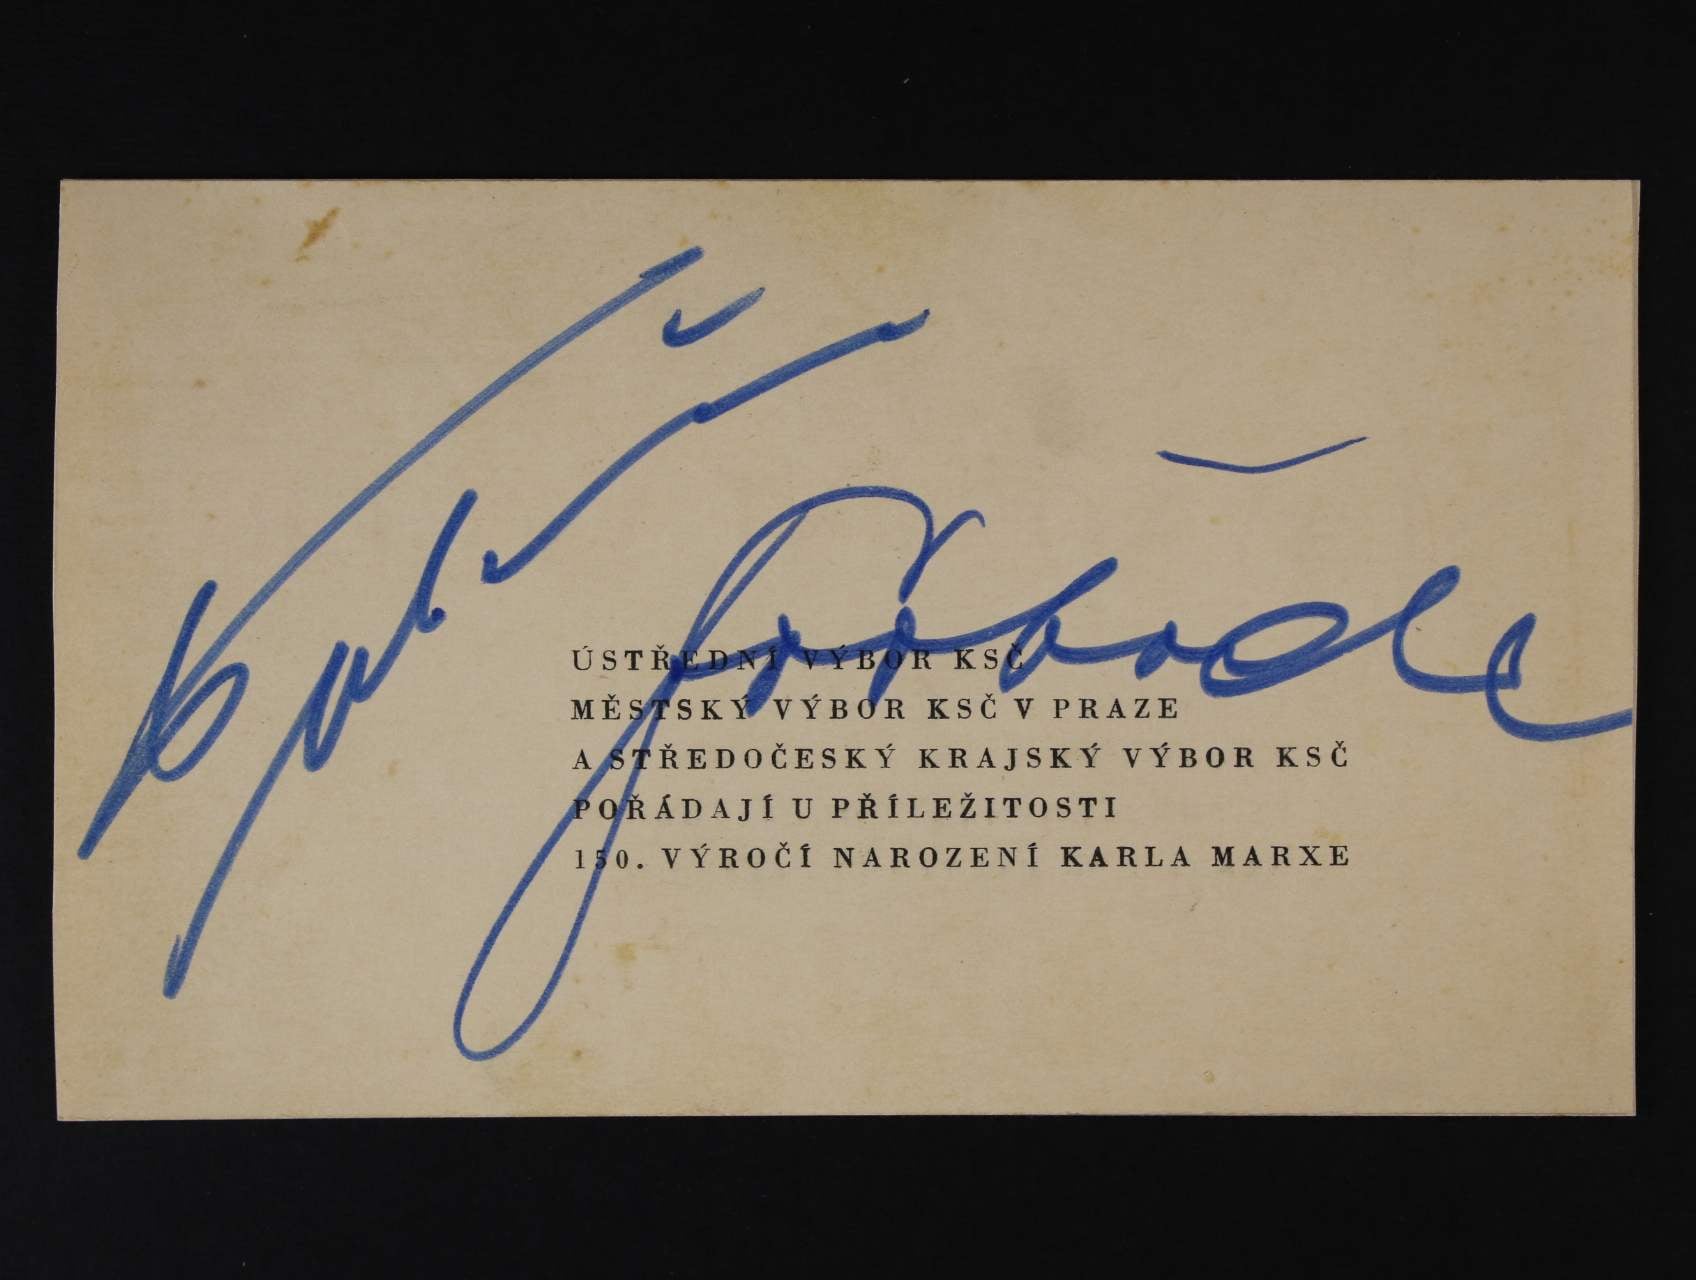 ÚSTŘEDNÍ VÝBOR KSČ
MĚSTSKÝ VÝBOR KSČ V PRAZE
A STŘEDOČESKÝ KRAJSKÝ VÝBOR KSČ
POŘÁDAJÍ U PŘÍLEŽITOSTI
150. VÝROČÍ NAROZENÍ KARLA MARXE